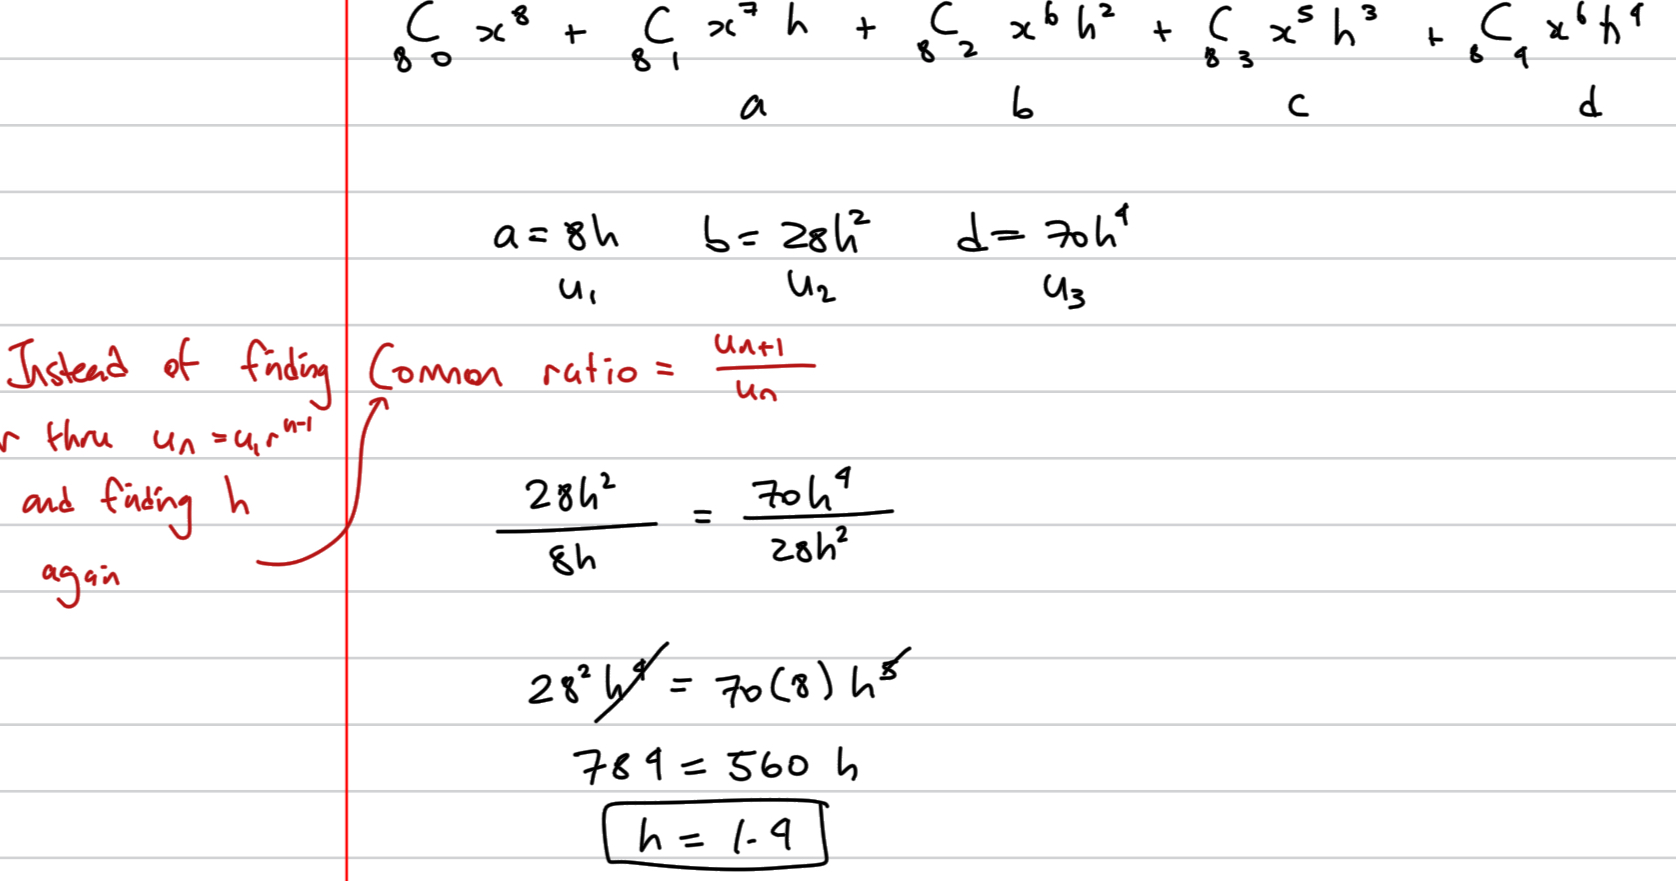 ₈C₀ x⁸ + ₈C₁ x⁷ h + ₈C₂ x⁶ h² + ₈C₃ x⁵ h³ + ₈C₄ x⁶ h⁴
a b c d
a = 8h b = 28h² d = 70h⁴
u₁ u₂ u₃
Instead of finding
r thru uₙ = u₁rⁿ⁻¹
and finding h
again
Common ratio = uₙ₊₁ / uₙ
28h² / 8h = 70h⁴ / 28h²
28² h⁴ = 70(8) h⁵
784 = 560 h
h = 1.4